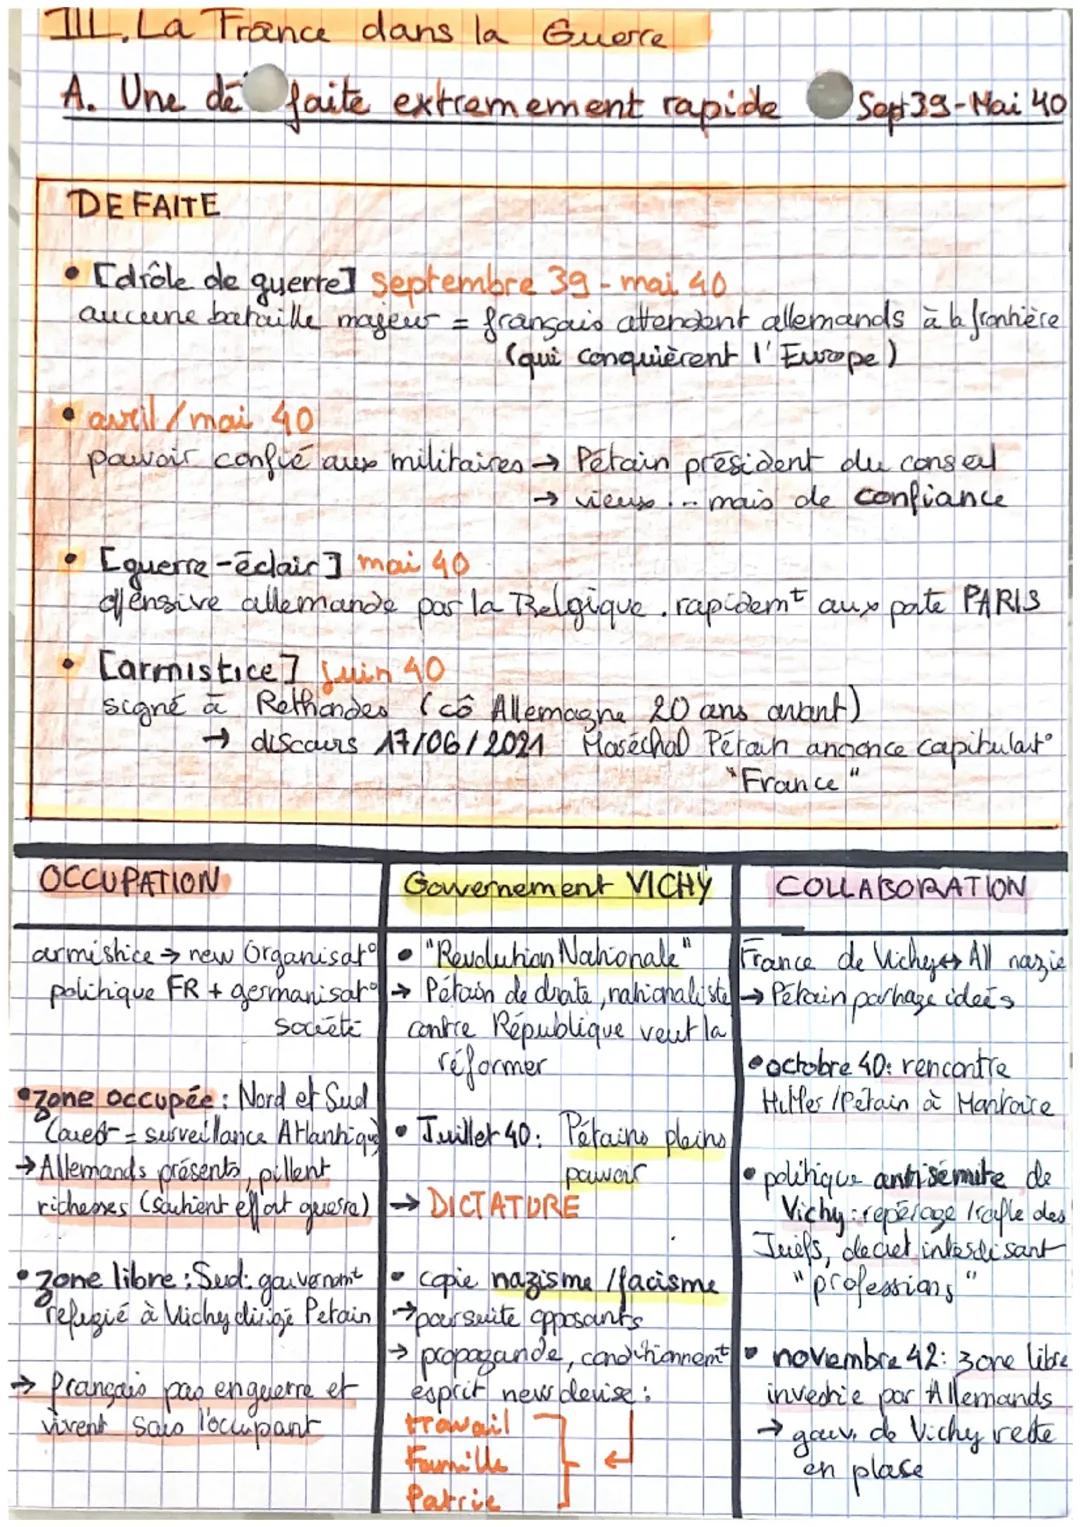 III. La France dans la Guerre
A. Une défaite extremement rapide Sept 39-Mai 40
DEFAITE
• [drôle de guerre] septembre 39 - mai 40
aucune bataille majeur = français attendent allemands à la frontière
(qui conquièrent l'Europe)
• avril/mai 40
pouvoir confié aux militaires → Pétain président du conseil
→ vieux ... mais de confiance
• [guerre-éclair] mai 40
offensive allemande par la Belgique. rapidemt aux porte PARIS
• [armistice] juin 40
signé à Rethondes (cô Allemagne 20 ans avant)
→ discours 17/06/2021 Maréchal Pétain annonce capitulat°
"France"
OCCUPATION
armistice → new Organisat°
politique FR + germanisat°
société
• zone occupée : Nord et Sud
(ouest = surveillance Atlantique)
→ Allemands présents, pillent
richesses (soutient effort guerre)
• zone libre : Sud: gouvernomt
refugié à Vichy dirigé Petain
→ français pas en guerre et
vivent sans l'occupant
Gouvernement VICHY
• "Revolution Nationale"
→ Pétain de droite, nationaliste
contre République veut la
réformer
• Juillet 40: Pétains pleins
pouvoir
→ DICTATURE
• copie nazisme / facisme
→ poursuite opposants
→ propagande, conditionnemt
esprit new devise :
travail
Famille
Patrie
COLLABORATION
France de Vichy ↔ All nazie
→ Pétain partage ideés
• octobre 40: rencontre
Hitler / Pétain à Montoire
• politique antisémite de
Vichy : repérage / rafle des
Juifs, decret interdisant
"professions"
• novembre 42: zone libre
investie par Allemands
→ gouv. de Vichy reste
en place